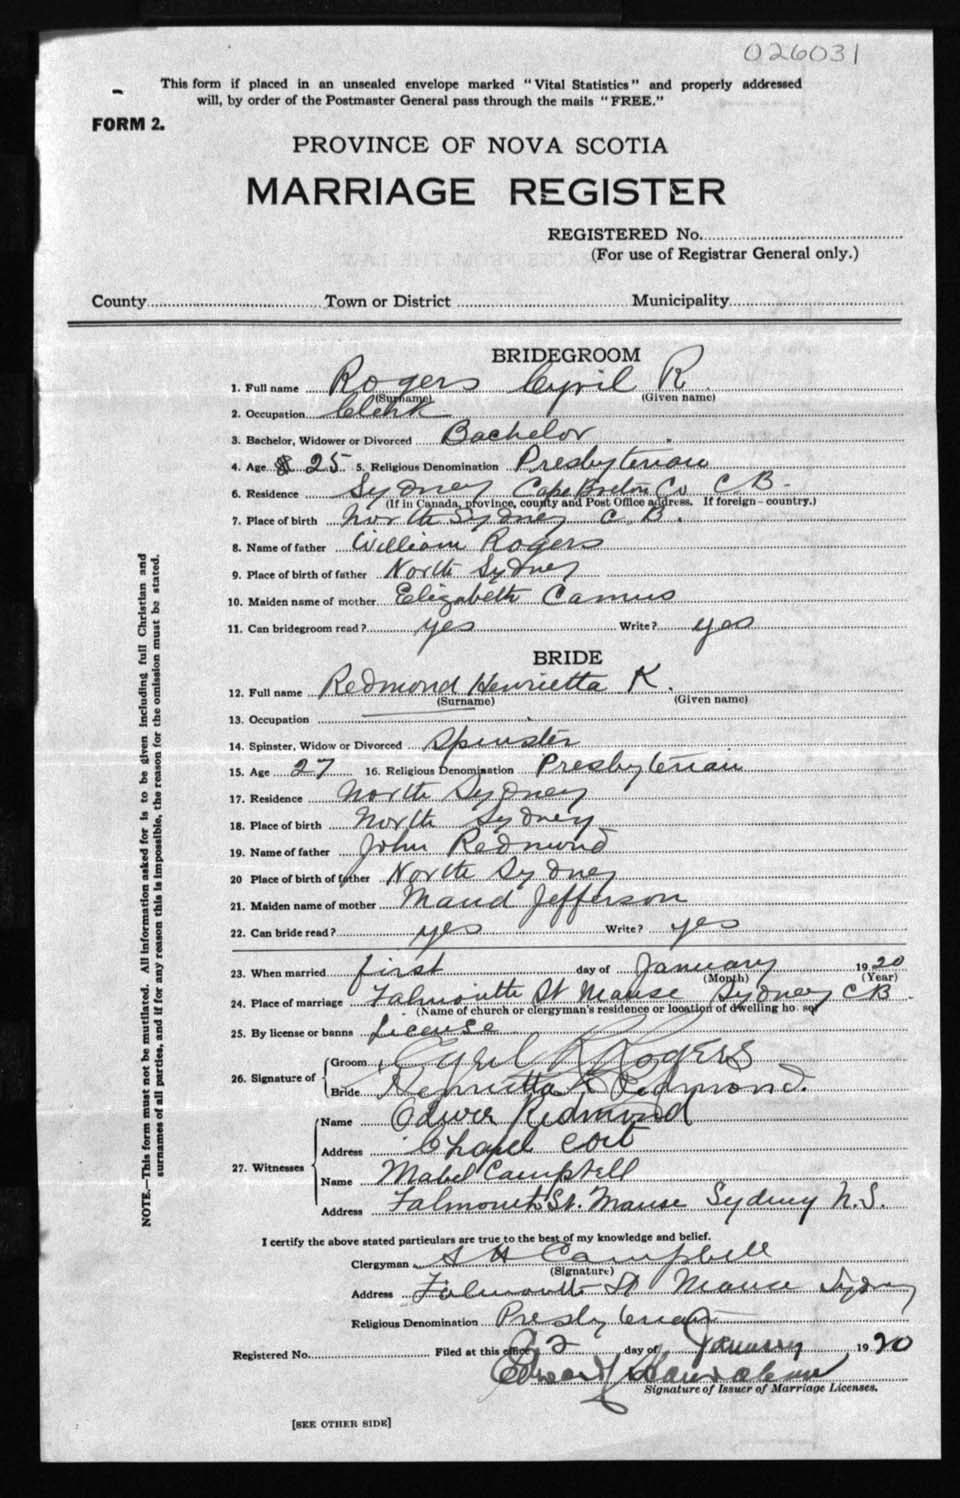 026031
This form if placed in an unsealed envelope marked "Vital Statistics" and properly addressed
will, by order of the Postmaster General pass through the mails "FREE."
FORM 2.
PROVINCE OF NOVA SCOTIA
MARRIAGE REGISTER
REGISTERED No.
(For use of Registrar General only.)
County Town or District Municipality
BRIDEGROOM
1. Full name Rogers Cyril R.
(Surname) (Given name)
2. Occupation Clerk
3. Bachelor, Widower or Divorced Bachelor
4. Age 25 5. Religious Denomination Presbyterian
6. Residence Sydney Cape Breton Co C B.
(If in Canada, province, county and Post Office address. If foreign country.)
7. Place of birth North Sydney C. B.
8. Name of father William Rogers
9. Place of birth of father North Sydney
10. Maiden name of mother Elizabeth Camus
11. Can bridegroom read? yes Write? yes
BRIDE
12. Full name Redmond Henrietta K.
(Surname) (Given name)
13. Occupation
14. Spinster, Widow or Divorced Spinster
15. Age 27 16. Religious Denomination Presbyterian
17. Residence North Sydney
18. Place of birth North Sydney
19. Name of father John Redmond
20 Place of birth of father North Sydney
21. Maiden name of mother Maud Jefferson
22. Can bride read? yes Write? yes
23. When married first day of January 1920
(Month) (Year)
24. Place of marriage Falmouth St Manse Sydney C B
(Name of church or clergyman's residence or location of dwelling ho so)
25. By license or banns License
26. Signature of Groom Cyril R Rogers
Bride Henrietta K Redmond.
27. Witnesses Name Redmond
Address Chapel
Name Mabel Campbell
Address Falmouth St. Manse Sydney N.S.
I certify the above stated particulars are true to the best of my knowledge and belief.
Clergyman Campbell
(Signature)
Address Falmouth St Manse Sydney
Religious Denomination Presbyterian
Registered No. Filed at this office 2 day of January 1920
Edward
Signature of Issuer of Marriage Licenses.
[SEE OTHER SIDE]
NOTE.—This form must not be mutilated. All information asked for is to be given including full Christian and
surnames of all parties, and if for any reason this is impossible, the reason for the omission must be stated.